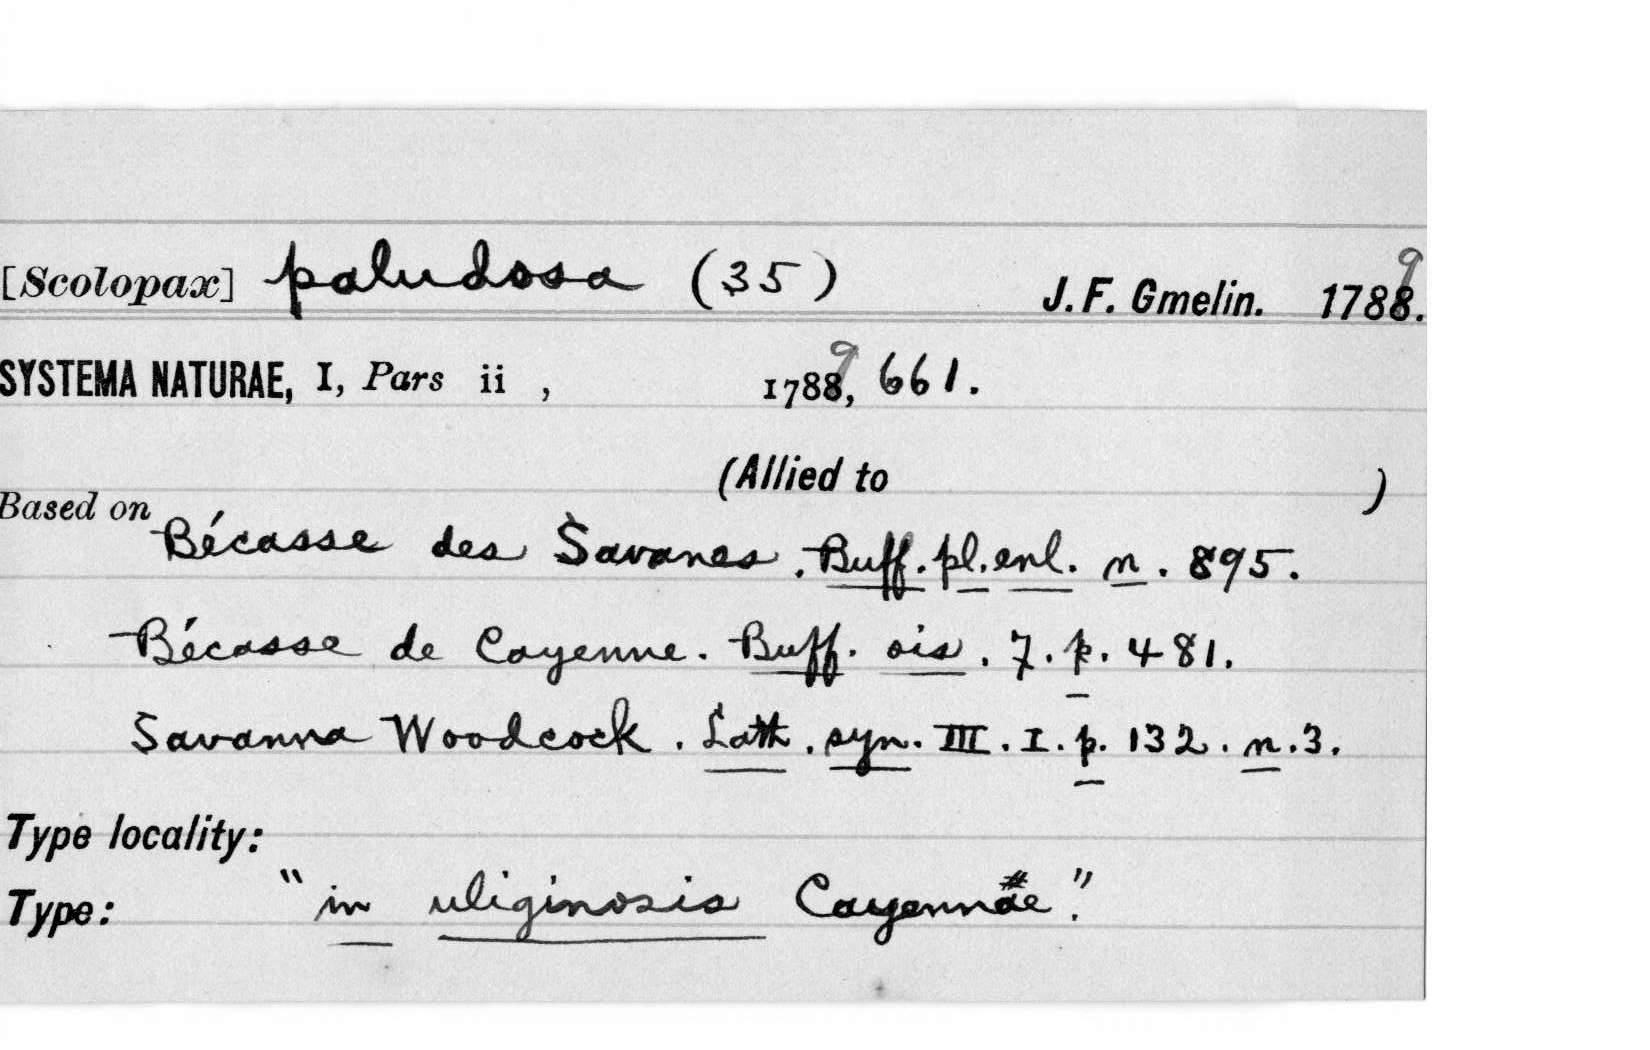 [Scolopax] paludosa (35) J. F. Gmelin. 1789.
SYSTEMA NATURAE, I, Pars ii , 1789, 661.
(Allied to )
Based on
Bécasse des Savanes. Buff. pl. enl. n. 895.
Bécasse de Cayenne. Buff. ois. 7. p. 481.
Savanna Woodcock. Lath. syn. III. I. p. 132. n. 3.
Type locality:
Type: "in uliginosis Cayennae".